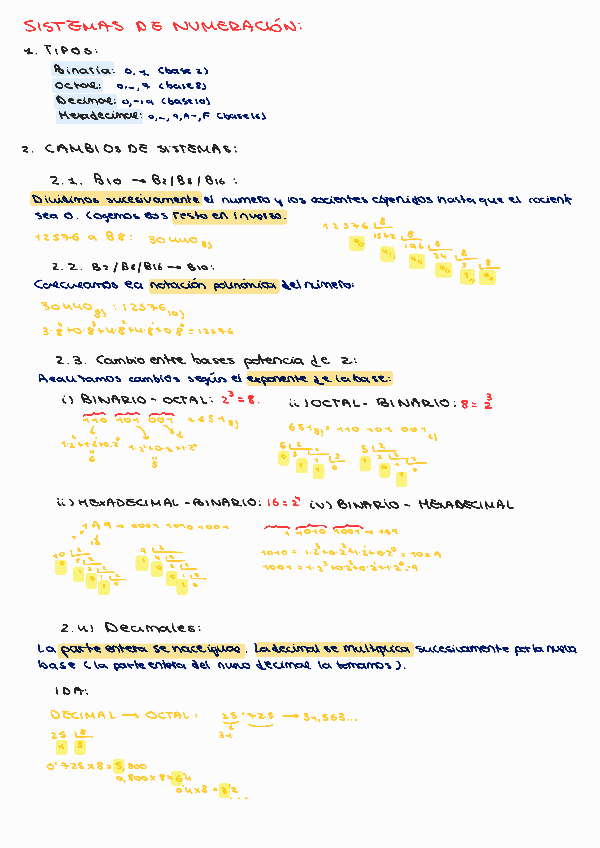 SISTEMAS DE NUMERACIÓN:
1. TIPOS:
Binaria: 0, 1 (base 2)
Octal: 0,..,7 (base 8)
Decimal: 0,..,9 (base 10)
Hexadecimal: 0,..,9,A..,F (base 16)
2. CAMBIOS DE SISTEMAS:
2.1. B10 → B2/B8/B16:
Dividimos sucesivamente el numero y los cocientes obtenidos hasta que el cocient
sea 0. Cogemos los resto en inverso.
12576 a B8: 30440 8)
12576 8
1572 8
196 8
24 8
3 8
2.2. B2/B8/B16 → B10:
Calculamos la notación polinómica del número:
30440 8) : 12576 10)
2.3. Cambio entre bases potencia de 2:
Realizamos cambios según el exponente de la base:
i) BINARIO - OCTAL: 2³=8.
ii) OCTAL - BINARIO: 8=2³
110 101 001 = 651 8)
651 8) = 110 101 001 2)
ii) HEXADECIMAL - BINARIO: 16=2⁴
iv) BINARIO - HEXADECIMAL
1A9 → 0001 1010 1001
1 1010 1001 → 1A9
1010 = 1·2³+0·2²+1·2¹+0·2⁰ = 10 = A
1001 = 1·2³+0·2²+0·2¹+1·2⁰ = 9
2.4) Decimales:
La parte entera se hace igual. La decimal se multiplica sucesivamente por la nueva
base (la parte entera del nuevo decimal la tomamos).
IDA:
DECIMAL → OCTAL: 25'725 → 31,563...
31
25 8
1 3
0'725 x 8 = 5,800
0,800 x 8 = 6'4
0'4 x 8 = 3'2
...